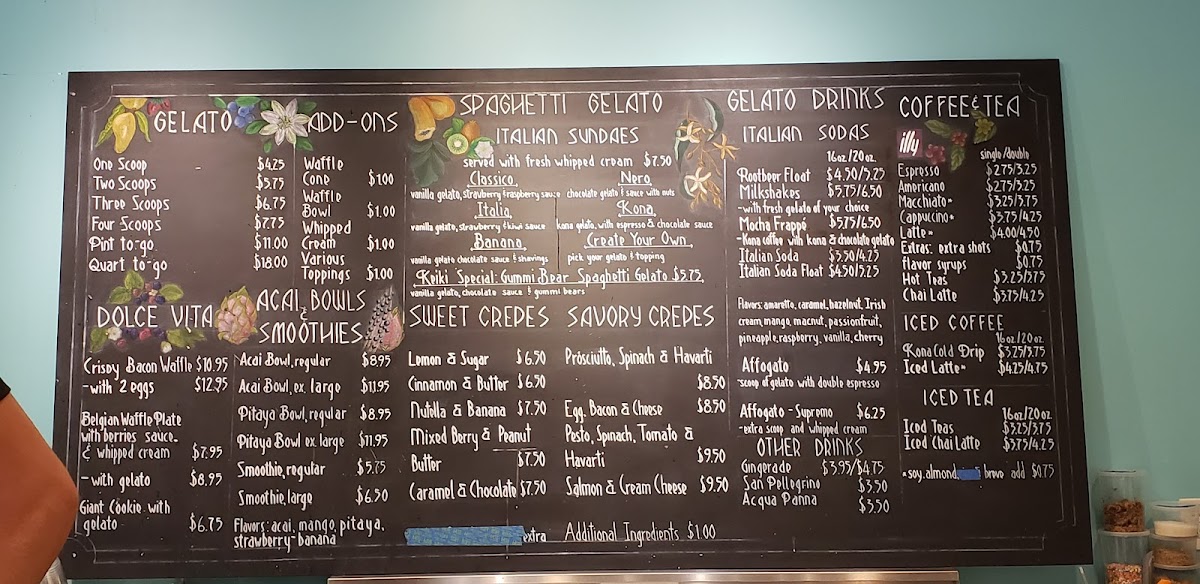 GELATO
One Scoop $4.25
Two Scoops $5.75
Three Scoops $6.75
Four Scoops $7.75
Pint to-go $11.00
Quart to-go $18.00
ADD-ONS
Waffle
Cone $1.00
Waffle
Bowl $1.00
Whipped
Cream $1.00
Various
Toppings $1.00
DOLCE VITA
Crispy Bacon Waffle $10.95
-with 2 eggs $12.95
Belgian Waffle Plate
with berries sauce
& whipped cream $7.95
-with gelato $8.95
Giant Cookie with
gelato $6.75
ACAI BOWLS
&
SMOOTHIES
Acai Bowl, regular $8.95
Acai Bowl, ex. large $11.95
Pitaya Bowl, regular $8.95
Pitaya Bowl ex. large $11.95
Smoothie, regular $5.75
Smoothie, large $6.50
Flavors: acai, mango, pitaya,
strawberry-banana
SPAGHETTI GELATO
ITALIAN SUNDAES
served with fresh whipped cream $7.50
Classico
vanilla gelato, strawberry & raspberry sauce
Nero
chocolate gelato & sauce with nuts
Italia
vanilla gelato, strawberry & kiwi sauce
Kona
kona gelato, with espresso & chocolate sauce
Banana
vanilla gelato chocolate sauce & shavings
Create Your Own
pick your gelato & topping
Keiki Special: Gummi Bear Spaghetti Gelato $5.75
vanilla gelato, chocolate sauce & gummi bears
SWEET CREPES
Lemon & Sugar $6.50
Cinnamon & Butter $6.50
Nutella & Banana $7.50
Mixed Berry & Peanut
Butter $7.50
Caramel & Chocolate $7.50
extra
SAVORY CREPES
Prosciutto, Spinach & Havarti
$8.50
Egg, Bacon & Cheese $8.50
Pesto, Spinach, Tomato &
Havarti $9.50
Salmon & Cream Cheese $9.50
Additional Ingredients $1.00
GELATO DRINKS
ITALIAN SODAS
16oz/20oz.
Rootbeer Float $4.50/5.25
Milkshakes $5.75/6.50
-with fresh gelato of your choice
Mocha Frappé $5.75/6.50
-Kona coffee with kona & chocolate gelato
Italian Soda $3.50/4.25
Italian Soda Float $4.50/5.25
Flavors: amaretto, caramel, hazelnut, Irish
cream, mango, macnut, passionfruit,
pineapple, raspberry, vanilla, cherry
Affogato $4.95
-scoop of gelato with double espresso
Affogato - Supremo $6.25
-extra scoop and whipped cream
OTHER DRINKS
Gingerade $3.95/$4.75
San Pellegrino $3.50
Acqua Panna $3.50
COFFEE & TEA
illy
single/double
Espresso $2.75/3.25
Americano $2.75/3.25
Macchiato* $3.25/3.75
Cappuccino* $3.75/4.25
Latte* $4.00/4.50
Extras: extra shots $0.75
flavor syrups $0.75
Hot Teas $3.25/3.75
Chai Latte $3.75/4.25
ICED COFFEE
16oz/20oz.
Kona Cold Drip $3.25/3.75
Iced Latte* $4.25/4.75
ICED TEA
16oz/20oz.
Iced Teas $3.25/3.75
Iced Chai Latte $3.75/4.25
*soy, almond, breve add $0.75